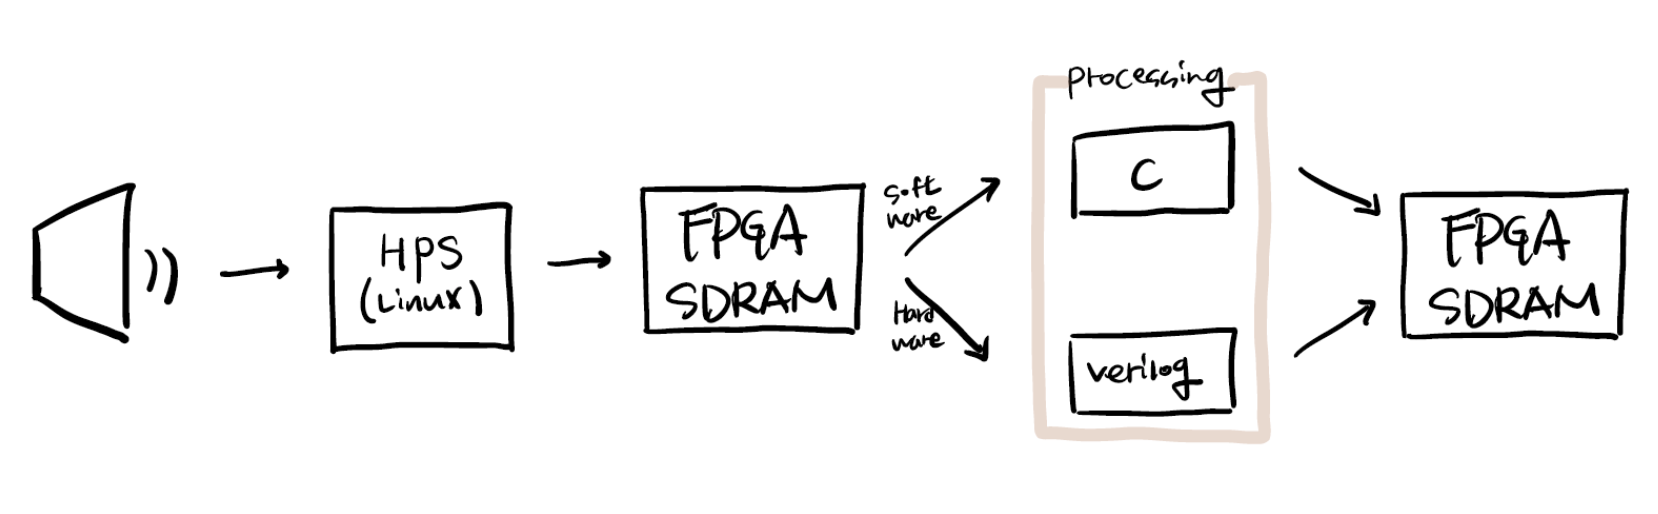 HPS
(Linux)
FPGA
SDRAM
Soft
ware
Hard
ware
processing
C
verilog
FPGA
SDRAM